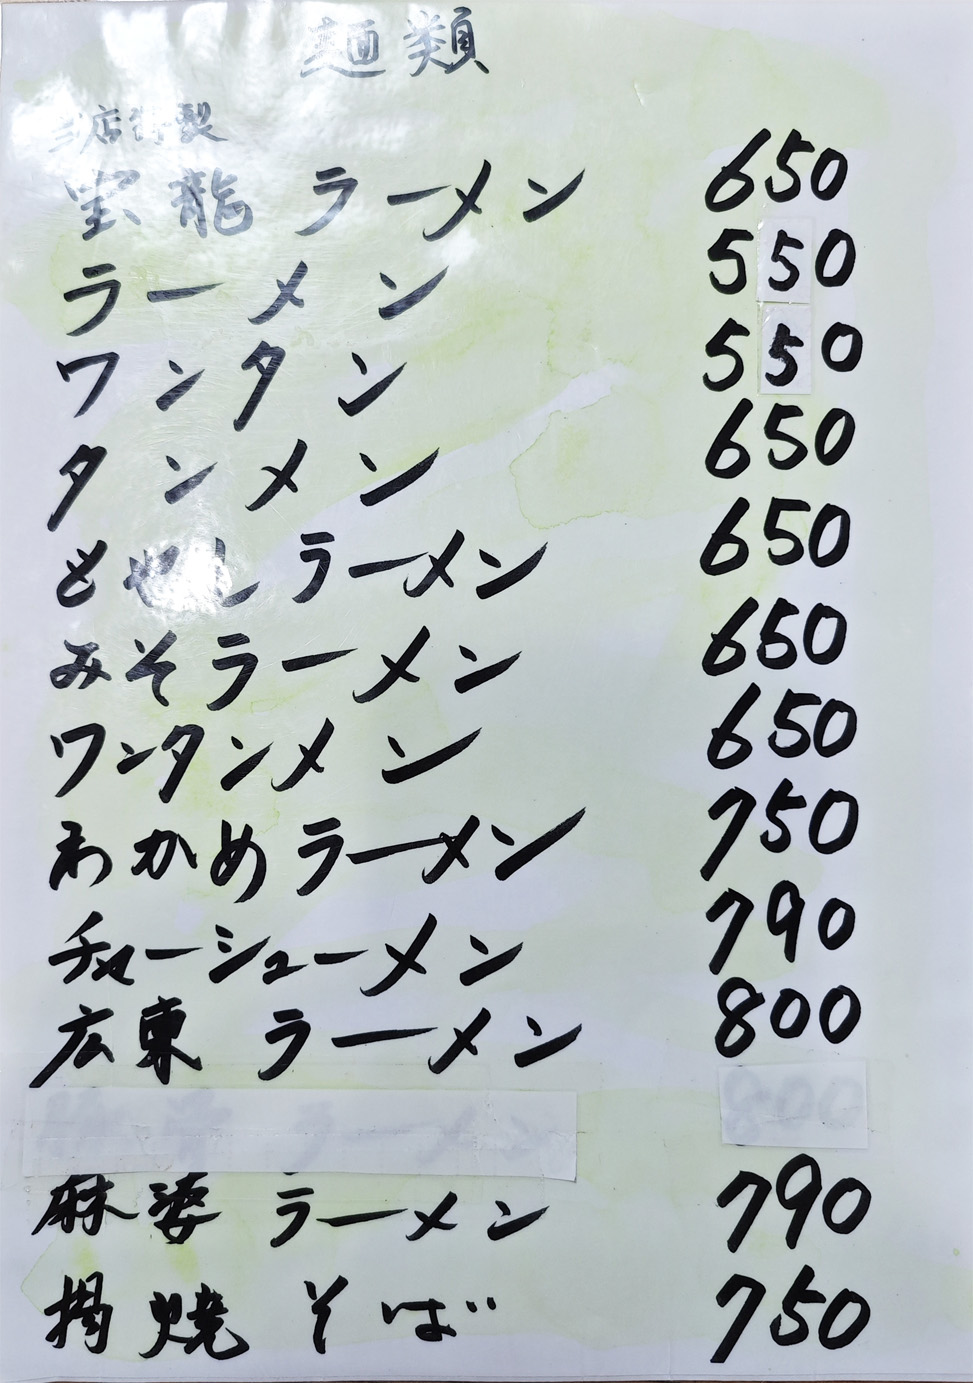 麺類
当店特製
宝龍ラーメン 650
ラーメン 550
ワンタン 550
タンメン 650
もやしラーメン 650
みそラーメン 650
ワンタンメン 650
わかめラーメン 750
チャーシューメン 790
広東ラーメン 800
ラーメン 800
麻婆ラーメン 790
揚焼そば 750